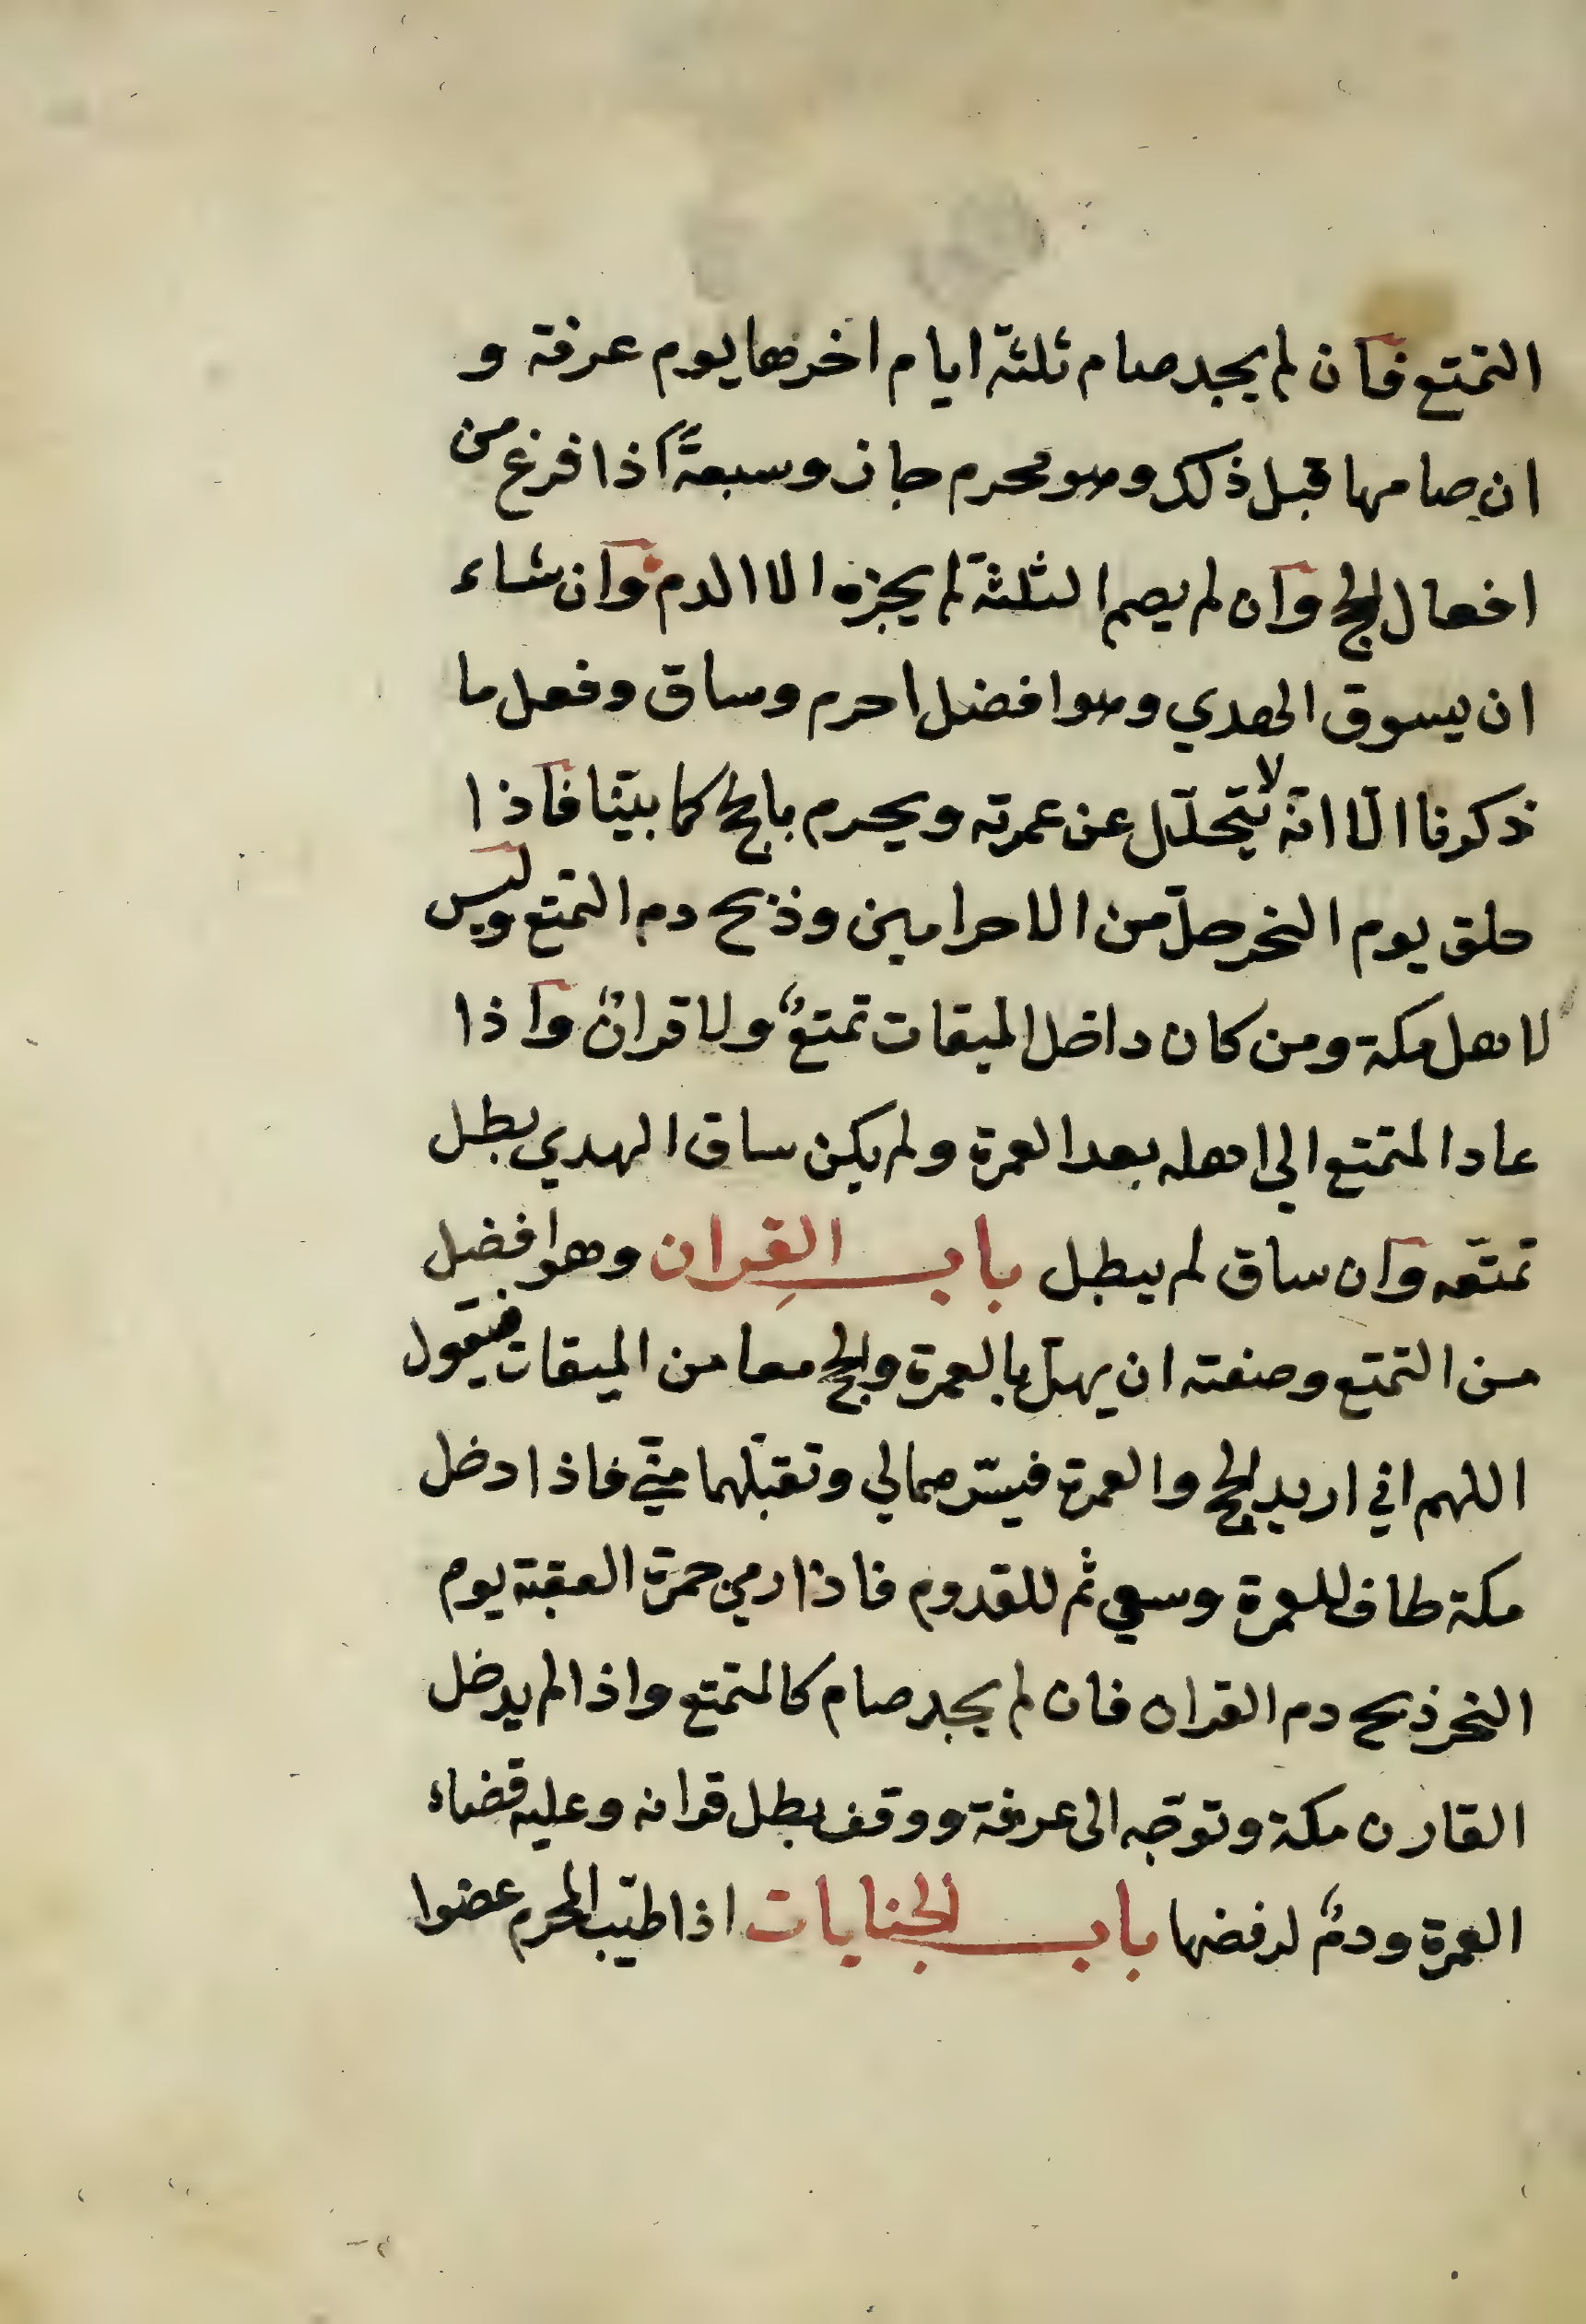 التمتع فان لم يجد صام ثلثة ايام اخرها يوم عرفة و
ان صامها قبل ذلك وهو محرم جاز وسبعةً اذا فرغ من
افعال الحج وان لم يصم الثلثة لم يجزه الا الدم وان شاء
ان يسوق الهدي وهو افضل احرم وساق وفعل ما
ذكرنا الّا انّه لا يتحلّل عن عمرته ويحرم بالحج كما بيّنا فاذا
حلق يوم النحر حلّ من الاحرامين وذبح دم التمتع وليس
لاهل مكة ومن كان داخل الميقات تمتعٌ ولا قرانٌ واذا
عاد المتمتع الى اهله بعد العمرة ولم يكن ساق الهدي بطل
تمتّعه وان ساق لم يبطل باب القِران وهو افضل
من التمتع وصفته ان يهلّ بالعمرة والحج معا من الميقات فيقول
اللهم اني اريد الحج والعمرة فيسّرهما لي وتقبّلهما منّي فاذا دخل
مكة طاف للعمرة وسعى ثم للقدوم فاذا رمى جمرة العقبة يوم
النحر ذبح دم القران فان لم يجد صام كالمتمتع واذا لم يدخل
القارن مكة وتوجّه الى عرفة ووقف بطل قرانه وعليه قضاء
العمرة ودمٌ لرفضها باب الجنايات اذا طيّب المحرم عضوا